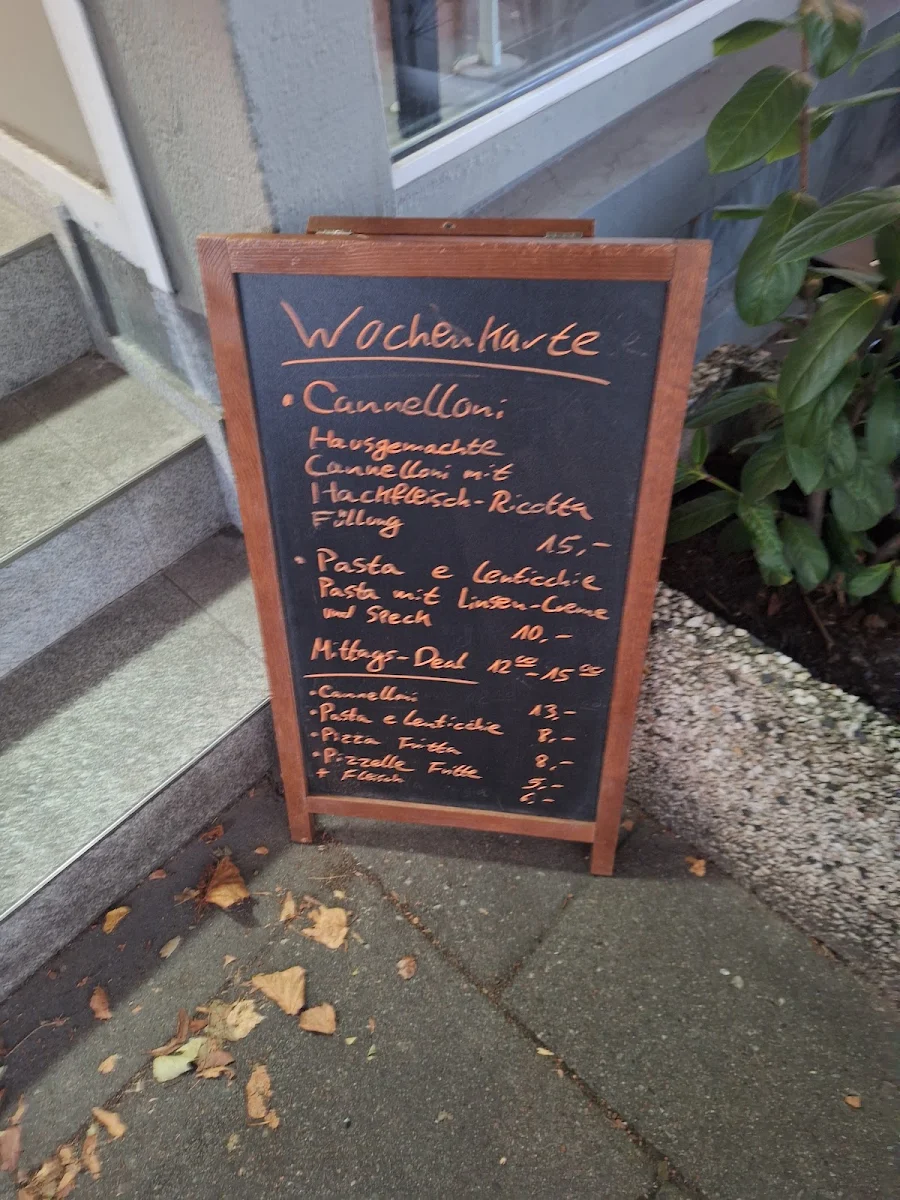 Wochenkarte
• Cannelloni
Hausgemachte
Cannelloni mit
Hackfleisch-Ricotta
Füllung
15,-
• Pasta e lenticchie
Pasta mit Linsen-Creme
und Speck
10,-
Mittags-Deal 12⁰⁰-15⁰⁰
• Cannelloni 13,-
• Pasta e lenticchie 8,-
• Pizza Fritta 8,-
• Pizzelle Fritte 5,-
+ Fleisch 6,-